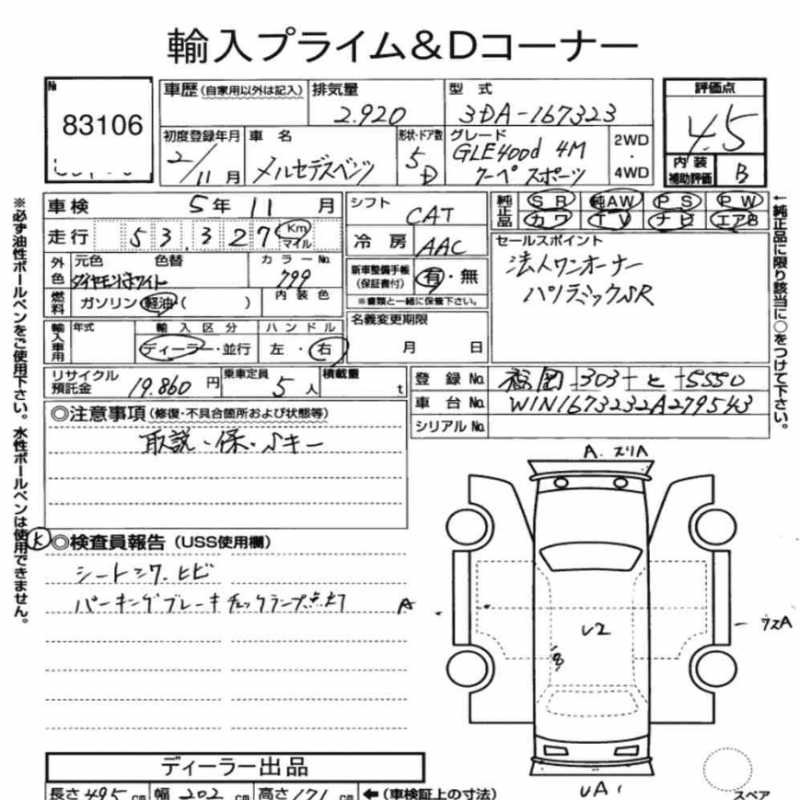 輸入プライム&Dコーナー
№ 83106
車歴(自家用以外は記入) 排気量 2.920 型式 3DA-167323
評価点 4.5
初度登録年月 2/11月 車名 メルセデスベンツ 形状・ドア数 5D グレード GLE400d 4M クーペスポーツ 2WD・4WD
内装補助評価 B
車検 5年11月 シフト CAT 純正品 SR 純AW PS PW
カワ TV ナビ エアB
走行 53.327 Km マイル 冷房 AAC
セールスポイント
法人ワンオーナー
パノラミックSR
外色 元色 色替 カラーNo.
ダイヤモンドホワイト 799
新車整備手帳(保証書付) 有・無
※書類と一緒に保管下さい。
燃料 ガソリン 軽油( ) 内装色
名義変更期限 月 日
輸入車用 年式 輸入区分 ハンドル
ディーラー・並行 左・右
リサイクル預託金 19.860円 乗車定員 5人 積載量 t
登録No. 福岡 303 と 5550
車台No. W1N1673232A279543
シリアルNo.
◎注意事項(修復・不具合箇所および状態等)
取説・保・Sキー
◎検査員報告(USS使用欄)
シートシワ、ヒビ
パーキングブレーキチェックランプ点灯
A
ディーラー出品
長さ 495cm 幅 202cm 高さ 171 ←(車検証上の寸法)
スペア
※必ず油性ボールペンをご使用下さい。水性ボールペンは使用できません。
←純正品に限り該当に○をつけて下さい。